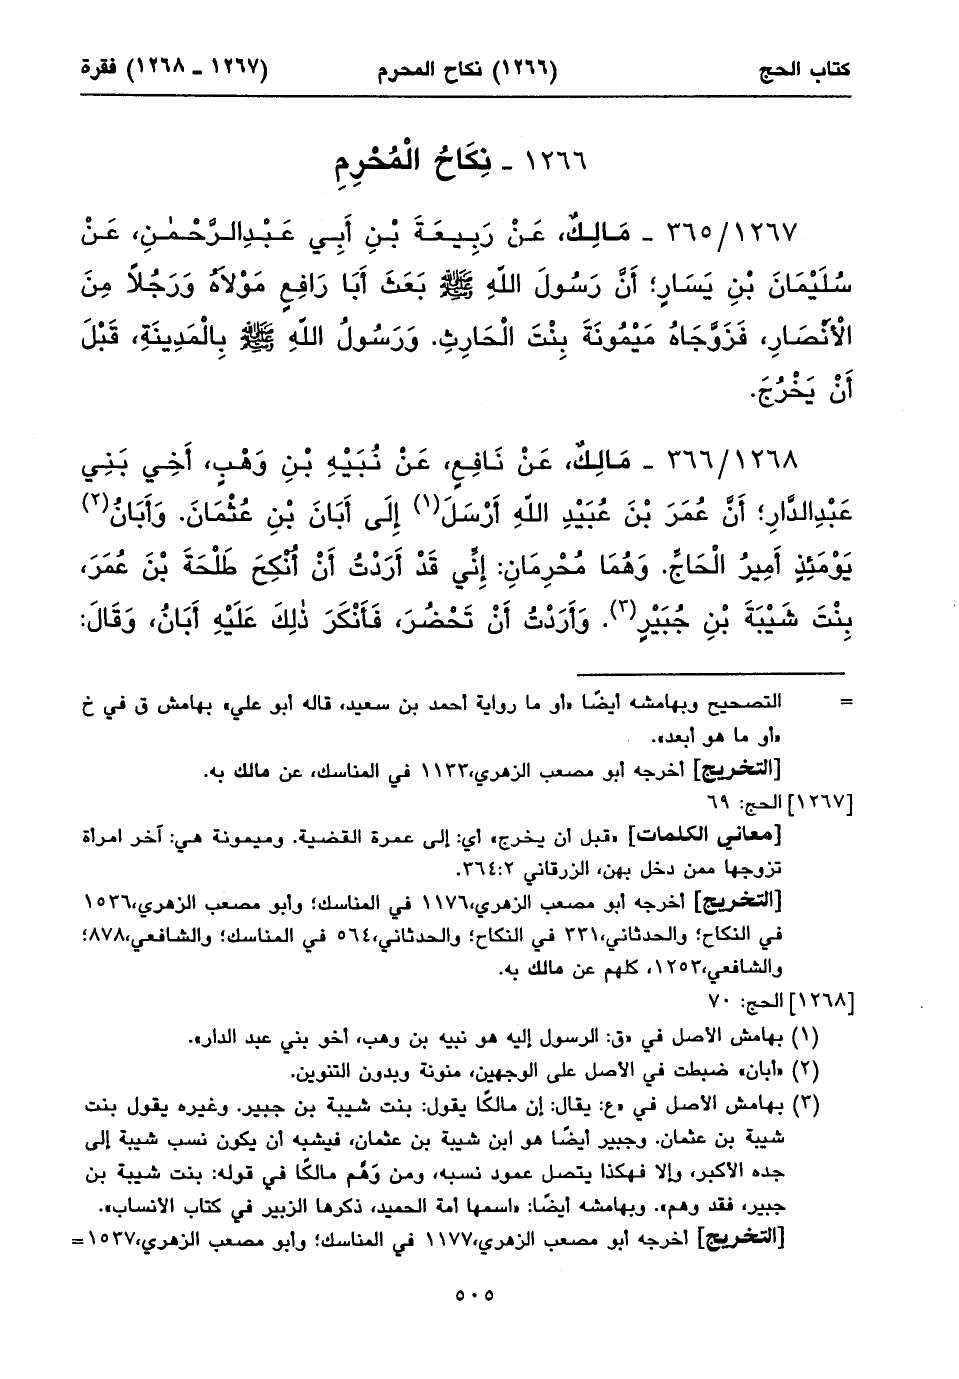 كتاب الحج (١٢٦٦) نكاح المحرم (١٢٦٧ - ١٢٦٨) فقرة
١٢٦٦ - نِكَاحُ الْمُحْرِمِ
٣٦٥/١٢٦٧ - مَالِكٌ، عَنْ رَبِيعَةَ بْنِ أَبِي عَبْدِالرَّحْمٰنِ، عَنْ
سُلَيْمَانَ بْنِ يَسَارٍ؛ أَنَّ رَسُولَ اللّهِ ﷺ بَعَثَ أَبَا رَافِعٍ مَوْلاَهُ وَرَجُلاً مِنَ
الْأَنْصَارِ، فَزَوَّجَاهُ مَيْمُونَةَ بِنْتَ الْحَارِثِ. وَرَسُولُ اللّهِ ﷺ بِالْمَدِينَةِ، قَبْلَ
أَنْ يَخْرُجَ.
٣٦٦/١٢٦٨ - مَالِكٌ، عَنْ نَافِعٍ، عَنْ نُبَيْهِ بْنِ وَهْبٍ، أَخِي بَنِي
عَبْدِالدَّارِ؛ أَنَّ عُمَرَ بْنَ عُبَيْدِ اللّهِ أَرْسَلَ(١) إِلَى أَبَانَ بْنِ عُثْمَانَ. وَأَبَانُ(٢)
يَوْمَئِذٍ أَمِيرُ الْحَاجِّ. وَهُمَا مُحْرِمَانِ: إِنِّي قَدْ أَرَدْتُ أَنْ أُنْكِحَ طَلْحَةَ بْنَ عُمَرَ،
بِنْتَ شَيْبَةَ بْنِ جُبَيْرٍ(٣). وَأَرَدْتُ أَنْ تَحْضُرَ، فَأَنْكَرَ ذٰلِكَ عَلَيْهِ أَبَانُ، وَقَالَ:
= التصحيح وبهامشه أيضًا «أو ما رواية أحمد بن سعيد، قاله أبو علي» بهامش ق في خ
«أو ما هو أبعد».
[التخريج] أخرجه أبو مصعب الزهري،١١٣٣ في المناسك، عن مالك به.
[١٢٦٧] الحج: ٦٩
[معاني الكلمات] «قبل أن يخرج» أي: إلى عمرة القضية. وميمونة هي: آخر امرأة
تزوجها ممن دخل بهن، الزرقاني ٣٦٤:٢.
[التخريج] أخرجه أبو مصعب الزهري،١١٧٦ في المناسك؛ وأبو مصعب الزهري،١٥٣٦
في النكاح؛ والحدثاني،٣٣١ في النكاح؛ والحدثاني،٥٦٤ في المناسك؛ والشافعي،٨٧٨؛
والشافعي،١٢٥٣، كلهم عن مالك به.
[١٢٦٨] الحج: ٧٠
(١) بهامش الأصل في «ق: الرسول إليه هو نبيه بن وهب، أخو بني عبد الدار».
(٢) «أبان» ضبطت في الأصل على الوجهين، منونة وبدون التنوين.
(٣) بهامش الأصل في «ع: يقال: إن مالكًا يقول: بنت شيبة بن جبير. وغيره يقول بنت
شيبة بن عثمان. وجبير أيضًا هو ابن شيبة بن عثمان، فيشبه أن يكون نسب شيبة إلى
جده الأكبر، وإلا فهكذا يتصل عمود نسبه، ومن وَهَّم مالكًا في قوله: بنت شيبة بن
جبير، فقد وهم». وبهامشه أيضًا: «اسمها أمة الحميد، ذكرها الزبير في كتاب الأنساب».
[التخريج] أخرجه أبو مصعب الزهري،١١٧٧ في المناسك؛ وأبو مصعب الزهري،١٥٣٧ =
٥٠٥